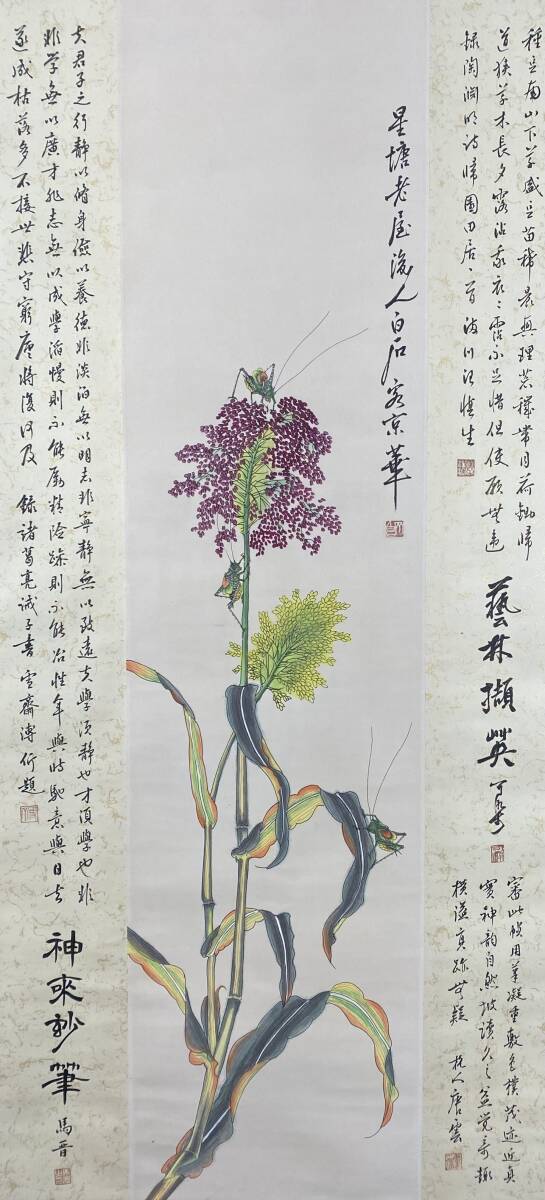 種豆南山下草盛豆苗稀晨興理荒穢帶月荷鋤歸
道狹草木長夕露沾我衣〻霑不足惜但使願無違
錄陶淵明詩歸園田居一首
藝林擷英 可染
審此幀用筆凝重敷色樸茂迹近真
實神韻自然披讀久之益覺奇趣
橫溢真跡無疑 杭人唐雲
星塘老屋後人白石客京華
夫君子之行靜以脩身儉以養德非淡泊無以明志非寧靜無以致遠夫學須靜也才須學也非
非学無以廣才非志無以成學滔慢則不能勵精險躁則不能冶性年與時馳意與日去
遂成枯落多不接世悲守窮廬將復何及 錄諸葛亮誡子書 雪齋溥伒題
神來妙筆 馬晉